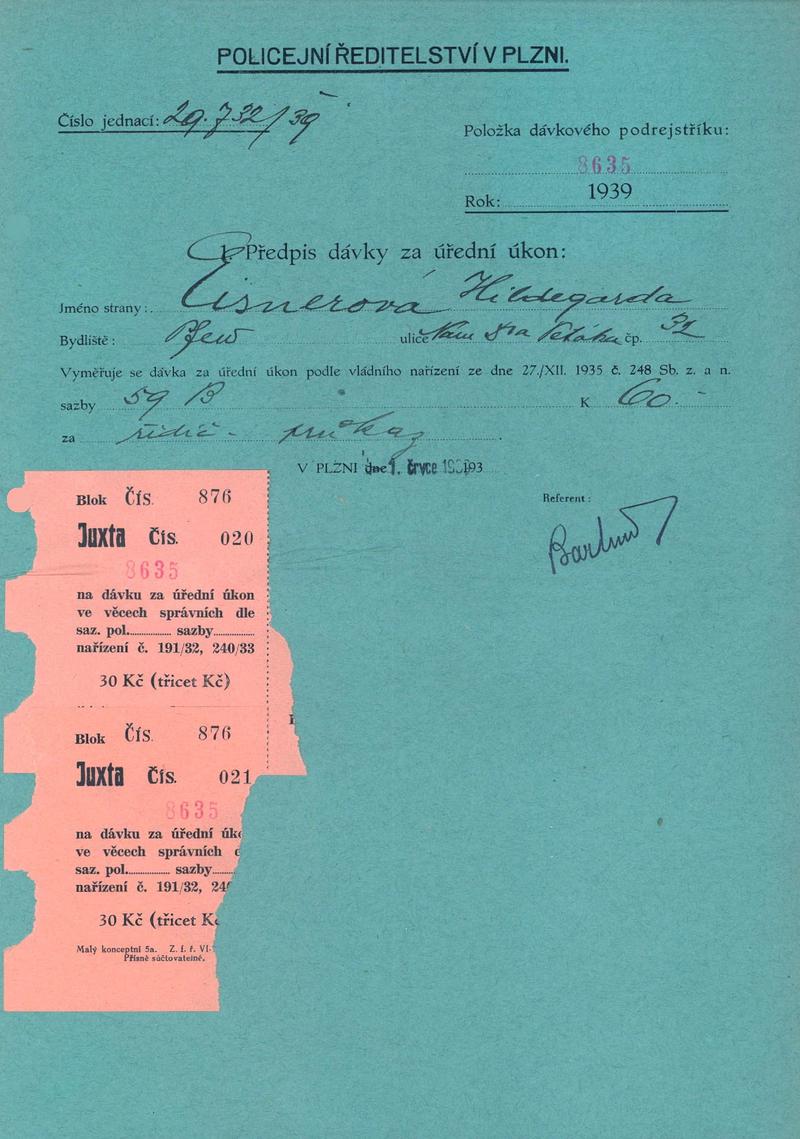 POLICEJNÍ ŘEDITELSTVÍ V PLZNI.
Číslo jednací: 29.732/39
Položka dávkového podrejstříku:
8635
Rok: 1939
1. Předpis dávky za úřední úkon:
Jméno strany: Eisnerová Hildegarda
Bydliště: ulice Nám Dra čp. 32
Vyměřuje se dávka za úřední úkon podle vládního nařízení ze dne 27./XII. 1935 č. 248 Sb. z. a n.
sazby 59 B K 60.-
za řidič. průkaz
V PLZNI dne 1. črvce 193
Referent:
Blok Čís. 876
Juxta Čís. 020
8635
na dávku za úřední úkon
ve věcech správních dle
saz. pol. sazby
nařízení č. 191/32, 240/33
30 Kč (třicet Kč)
Blok Čís. 876
Juxta Čís. 021
8635
na dávku za úřední úk
ve věcech správních
saz. pol. sazby
nařízení č. 191/32, 24
30 Kč (třicet K
Malý konceptní 5a. Z. f. ř. VI-
Přísně súčtovatelné.